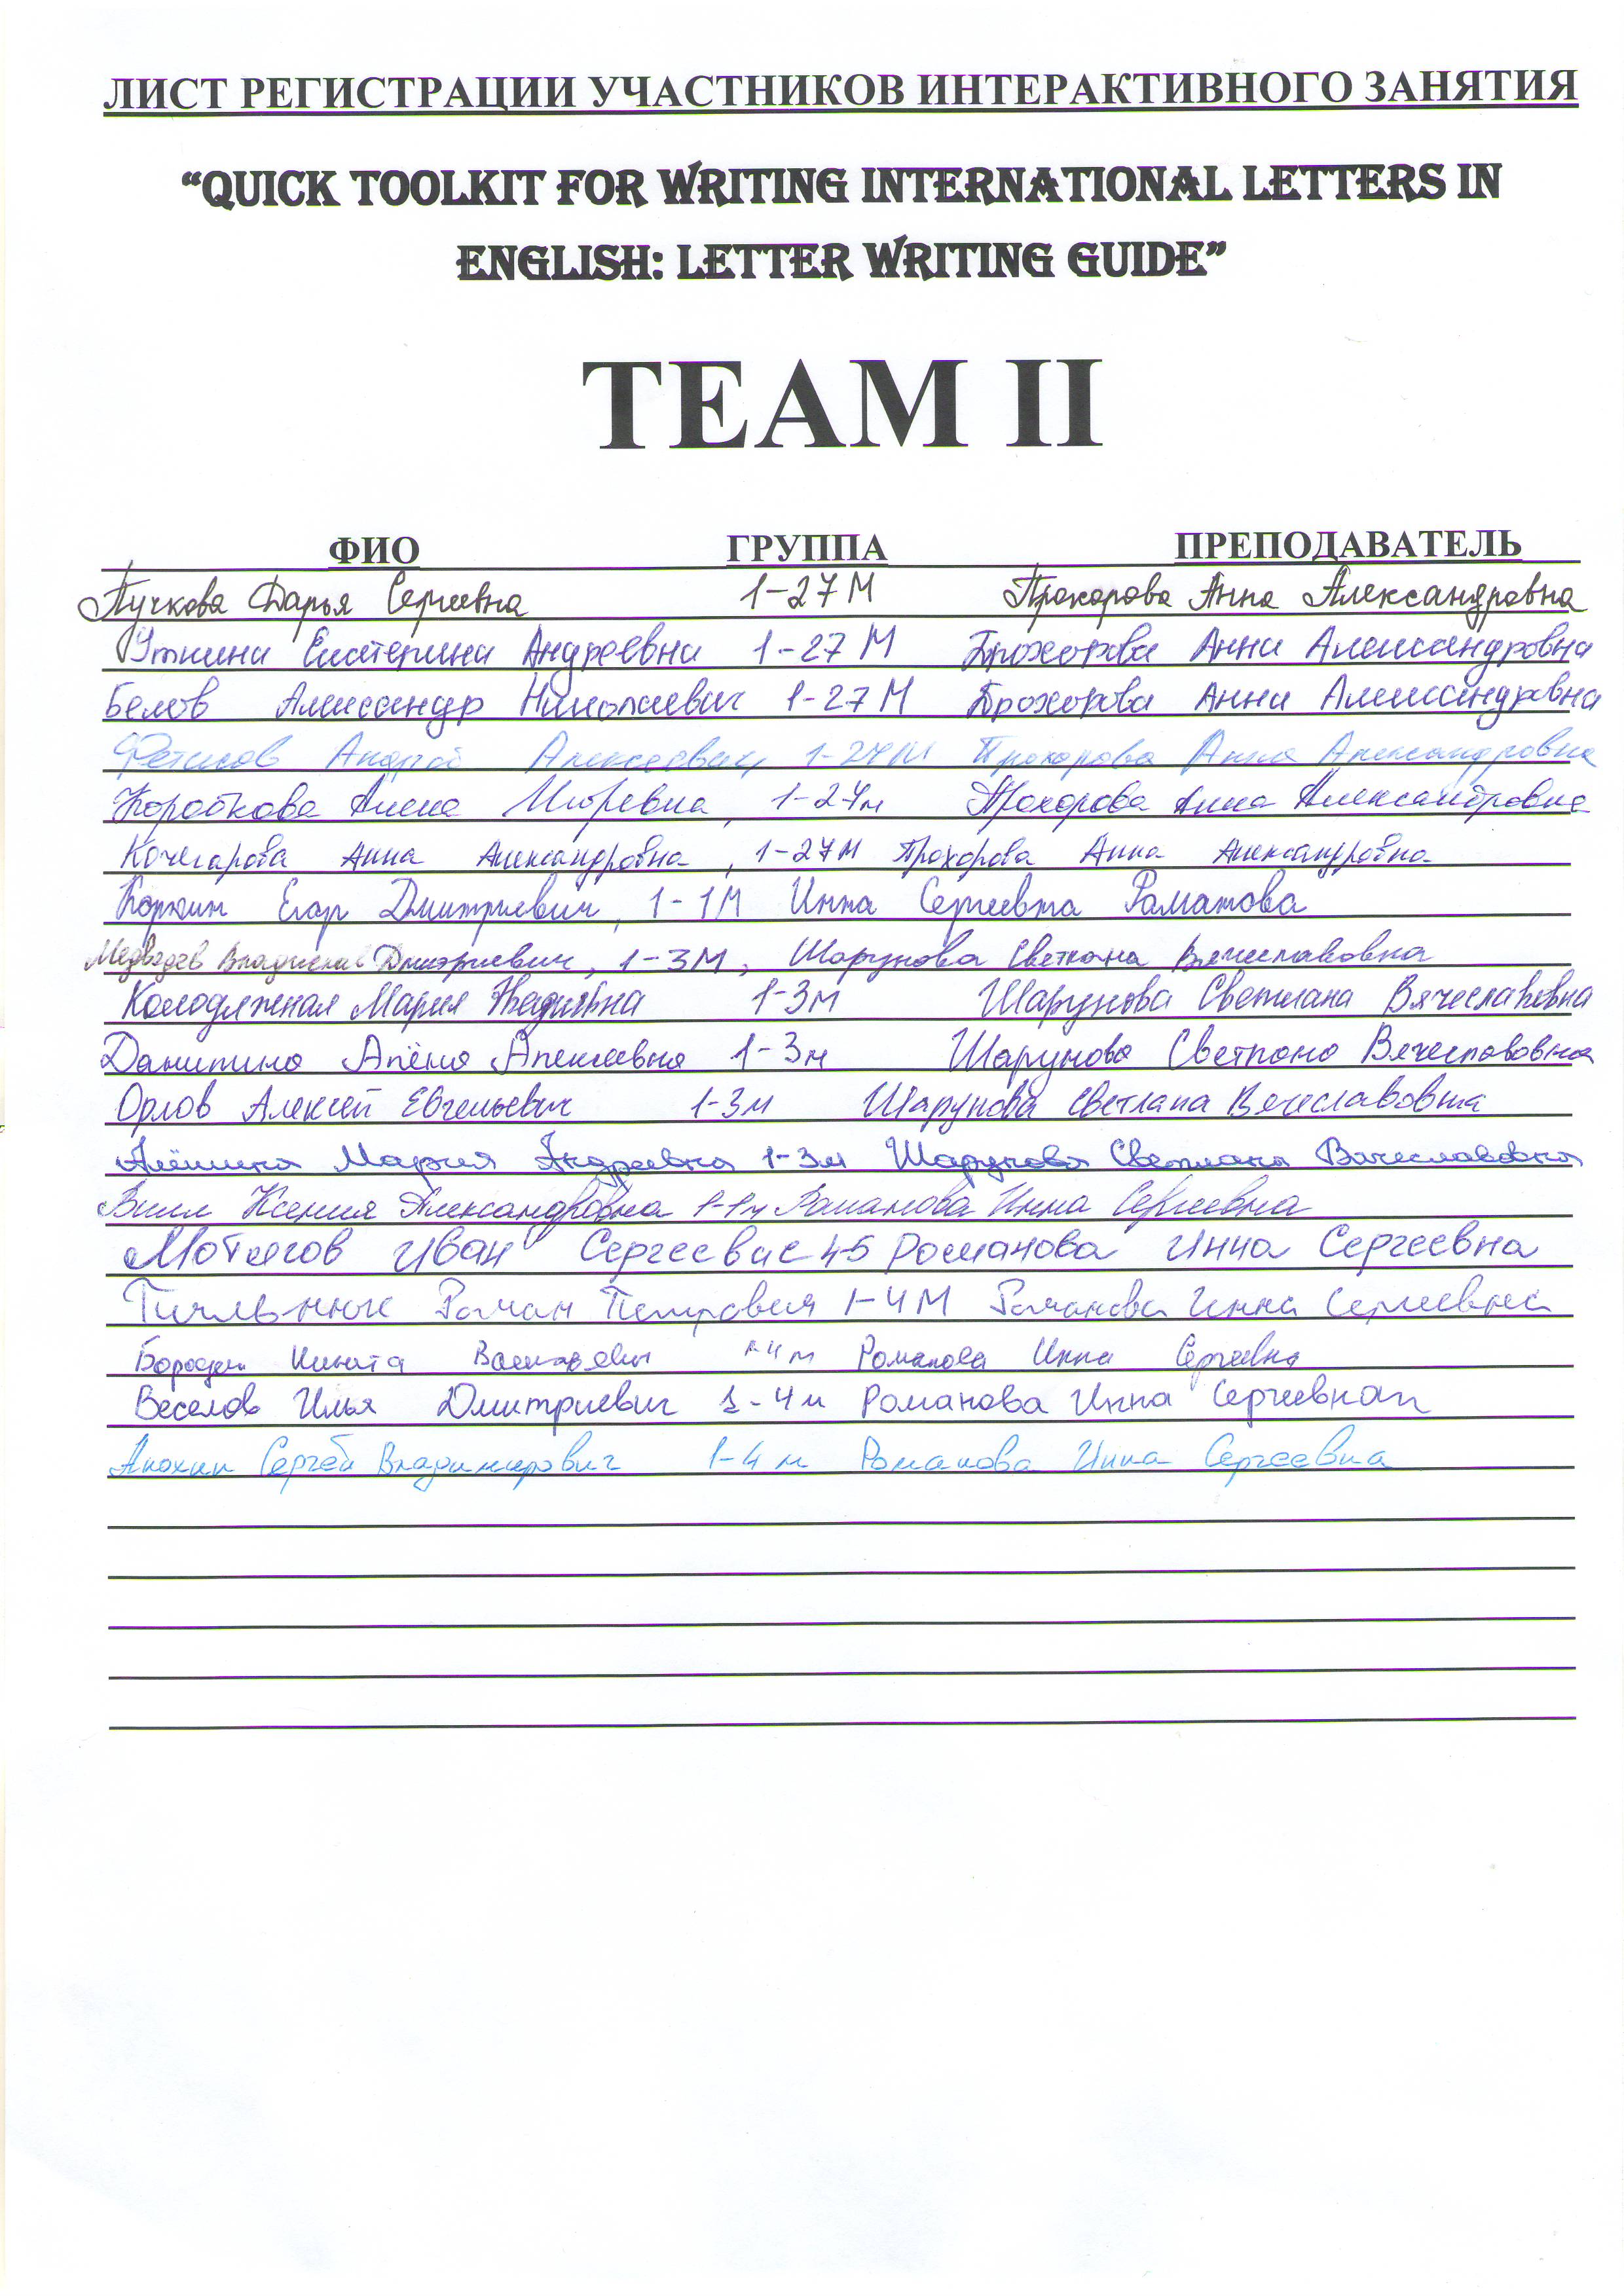 ЛИСТ РЕГИСТРАЦИИ УЧАСТНИКОВ ИНТЕРАКТИВНОГО ЗАНЯТИЯ
“QUICK TOOLKIT FOR WRITING INTERNATIONAL LETTERS IN
ENGLISH: LETTER WRITING GUIDE”
TEAM II
ФИО ГРУППА ПРЕПОДАВАТЕЛЬ
Пучкова Дарья Сергеевна 1-27М Прохорова Анна Александровна
Уткина Екатерина Андреевна 1-27М Прохорова Анна Александровна
Белов Александр Николаевич 1-27М Прохорова Анна Александровна
Фетисов Андрей Алексеевич, 1-27М Прохорова Анна Александровна
Короткова Алена Игоревна, 1-27м Прохорова Анна Александровна
Кочегарова Анна Александровна, 1-27М Прохорова Анна Александровна
Коркин Егор Дмитриевич, 1-1М Инна Сергеевна Романова
Медведев Владислав Дмитриевич, 1-3М, Шарунова Светлана Вячеславовна
Колодяжная Мария 1-3м Шарунова Светлана Вячеславовна
Данилина Алёна Алексеевна 1-3м Шарунова Светлана Вячеславовна
Орлов Алексей Евгеньевич 1-3м Шарунова Светлана Вячеславовна
Алёшина Мария Андреевна 1-3м Шарунова Светлана Вячеславовна
Вилл Ксения Александровна 1-1м Романова Инна Сергеевна
Мотягов Иван Сергеевис 45 Романова Инна Сергеевна
Роман Петрович 1-4М Романова Инна Сергеевна
Бородин Никита 1-4м Романова Инна Сергеевна
Веселов Илья Дмитриевич 1-4м Романова Инна Сергеевна
Анохин Сергей Владимирович 1-4м Романова Инна Сергеевна